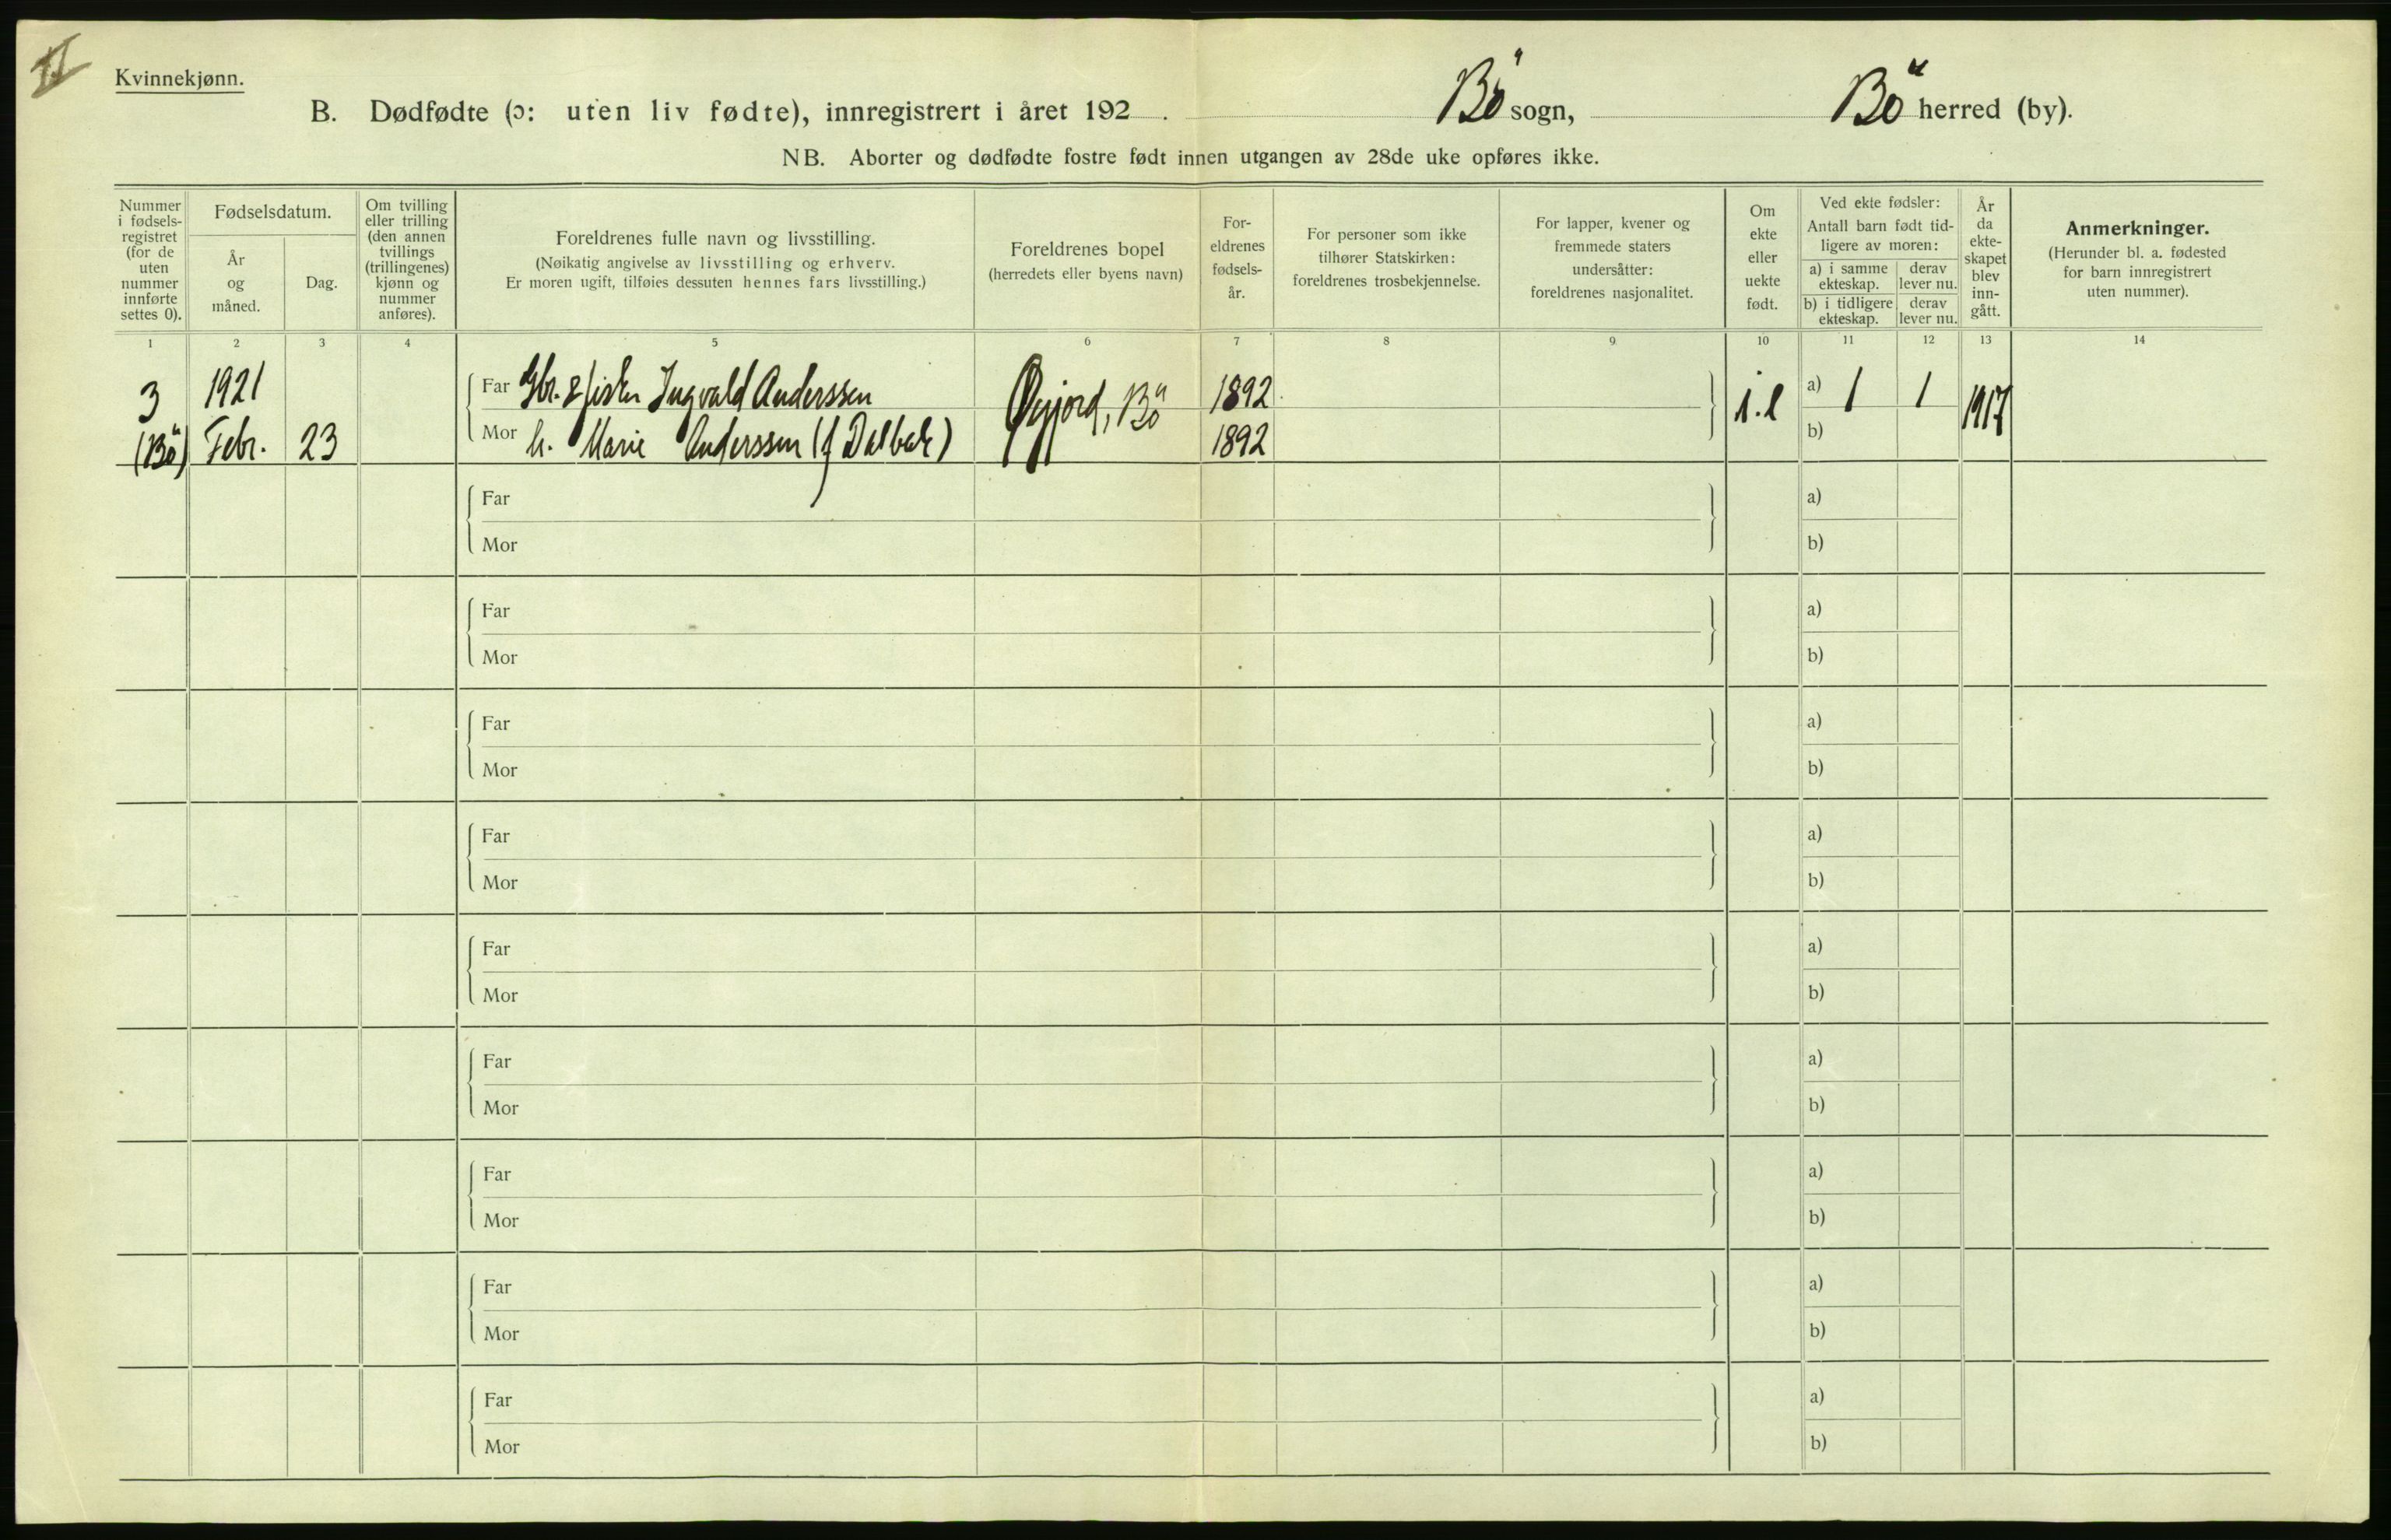 II
Kvinnekjønn.
B. Dødfødte (ɔ: uten liv fødte), innregistrert i året 192 . Bö sogn, Bö herred (by).
NB. Aborter og dødfødte fostre født innen utgangen av 28de uke opføres ikke.
Nummer i fødsels-registret (for de uten nummer innførte settes 0).
Fødselsdatum.
År og måned.
Dag.
Om tvilling eller trilling (den annen tvillings (trillingenes) kjønn og nummer anføres).
Foreldrenes fulle navn og livsstilling.
(Nøikatig angivelse av livsstilling og erhverv.
Er moren ugift, tilføies dessuten hennes fars livsstilling.)
Foreldrenes bopel
(herredets eller byens navn)
For-eldrenes fødsels-år.
For personer som ikke tilhører Statskirken: foreldrenes trosbekjennelse.
For lapper, kvener og fremmede staters undersåtter: foreldrenes nasjonalitet.
Om ekte eller uekte født.
Ved ekte fødsler:
Antall barn født tid-ligere av moren:
a) i samme ekteskap. derav lever nu.
b) i tidligere ekteskap. derav lever nu.
År da ekte-skapet blev inn-gått.
Anmerkninger.
(Herunder bl. a. fødested for barn innregistrert uten nummer).
1 2 3 4 5 6 7 8 9 10 11 12 13 14
3 1921 Far Gbr. & fisker Ingvald Anderssen Øyjord, Bö 1892 a) 1 1 1917
(Bö) Febr. 23 Mor h. Marie Anderssen (f Dalbak) 1892 b)
Far a)
Mor b)
Far a)
Mor b)
Far a)
Mor b)
Far a)
Mor b)
Far a)
Mor b)
Far a)
Mor b)
Far a)
Mor b)
Far a)
Mor b)
Far a)
Mor b)